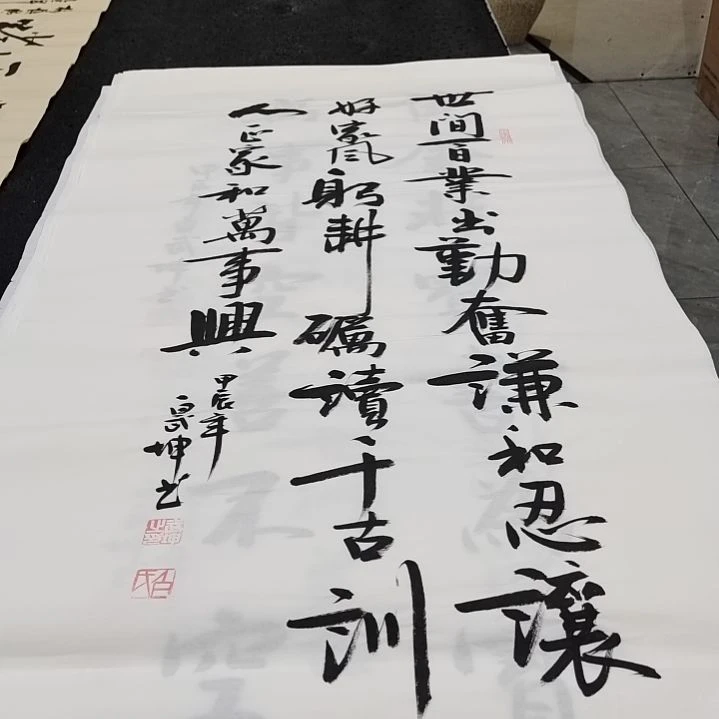 世間百業出勤奮謙和忍讓
好家風躬耕礪讀千古訓
人正家和萬事興
甲辰年
坤书